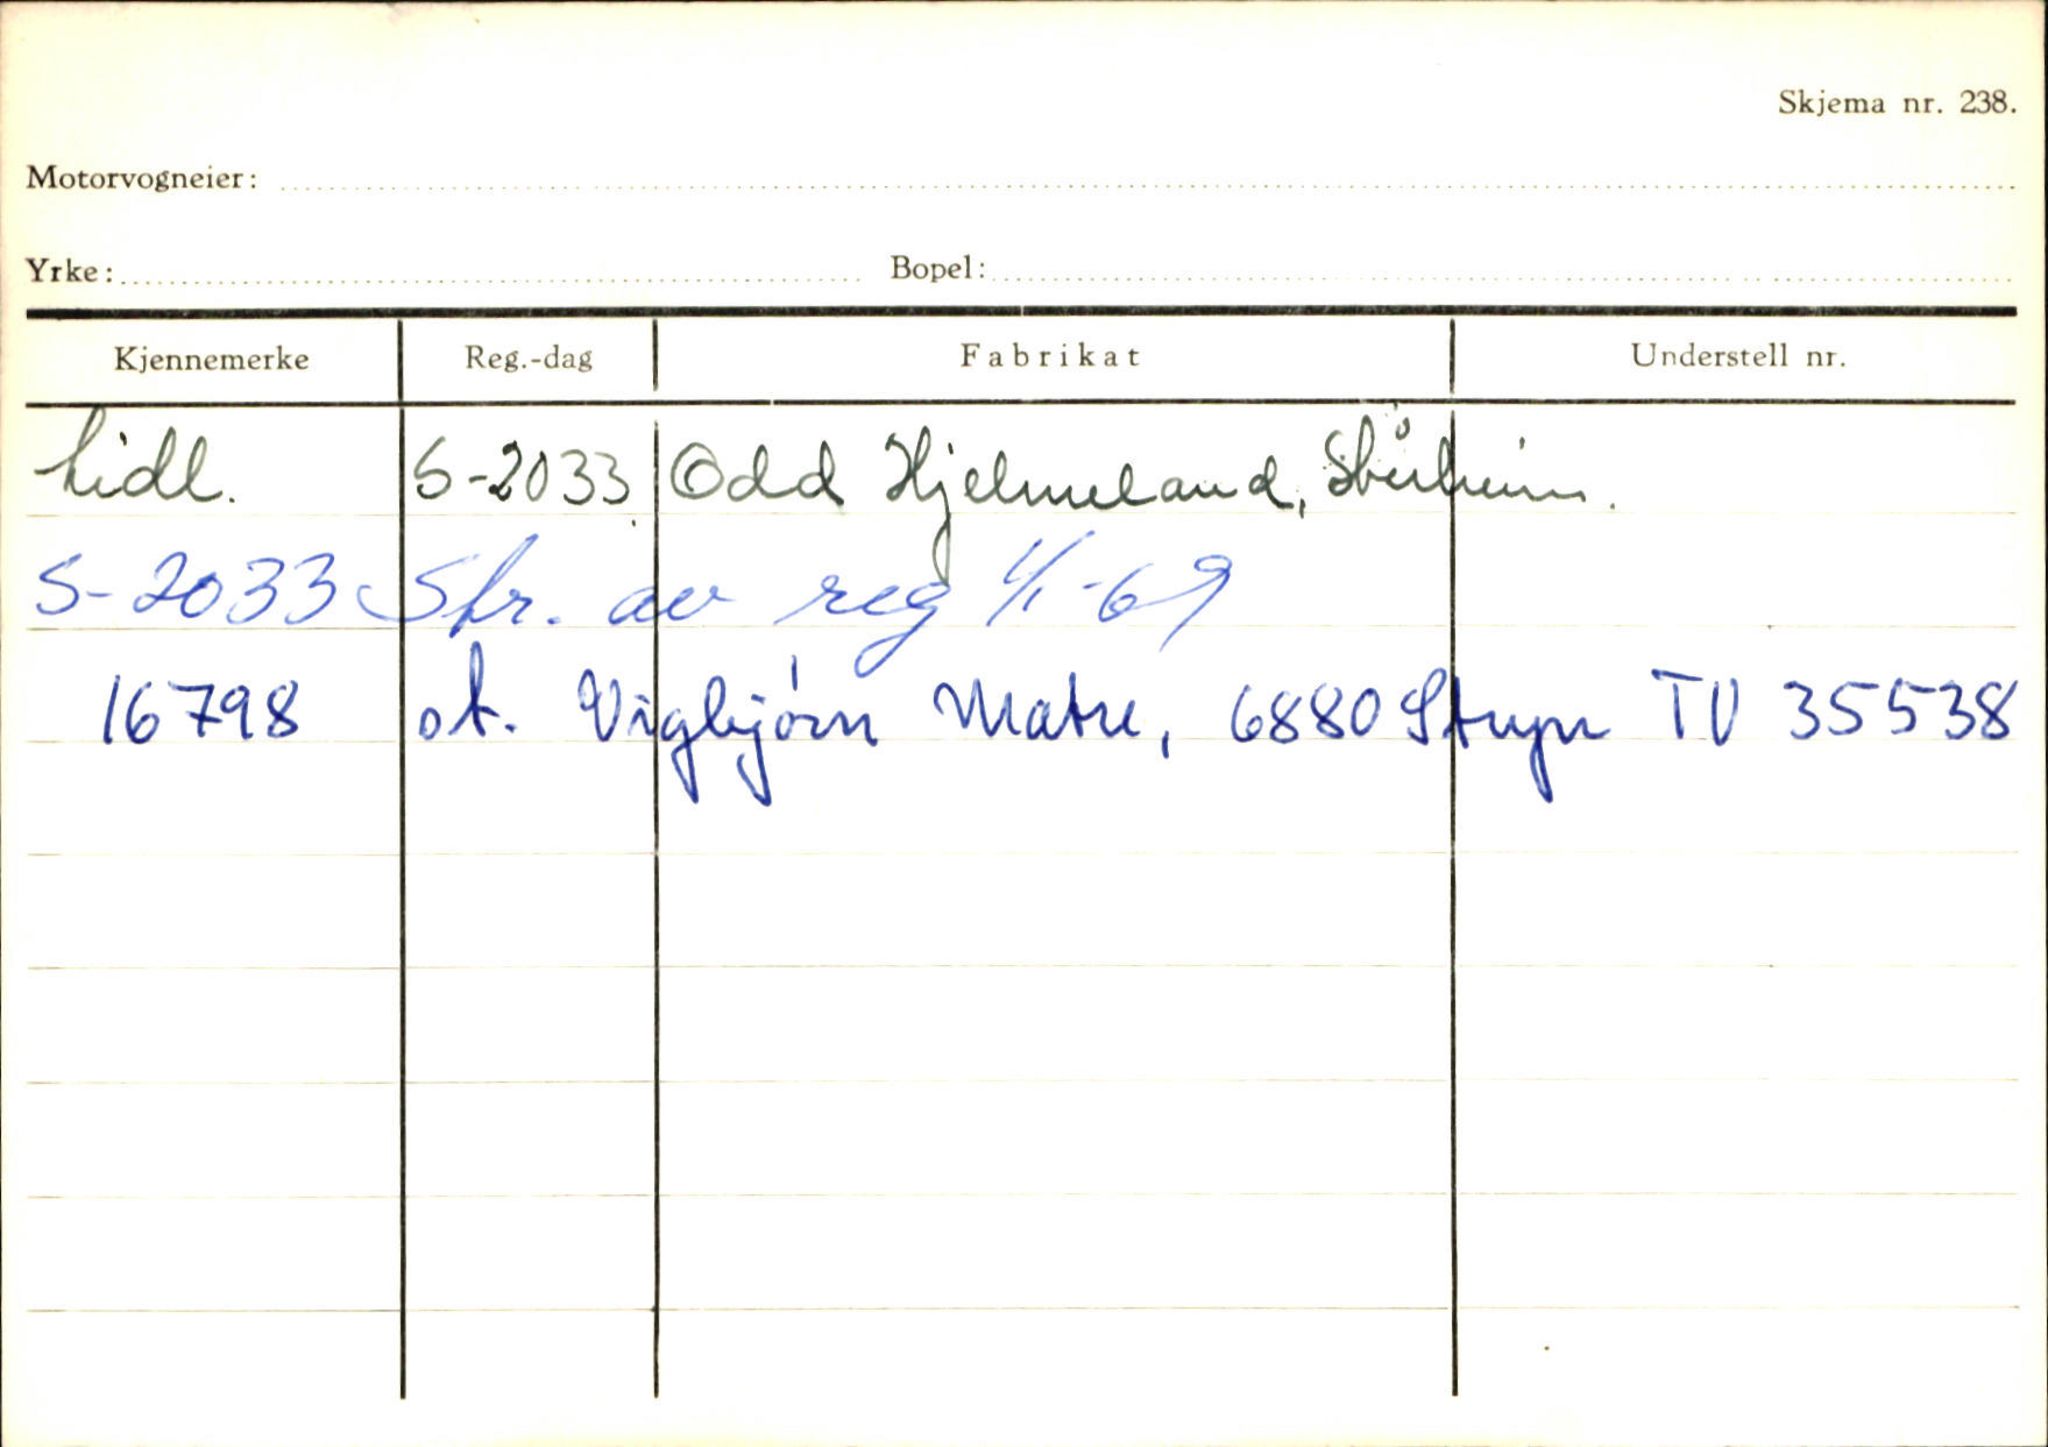 Skjema nr. 238.
Motorvogneier:
Yrke: Bopel:
Kjennemerke Reg.-dag Fabrikat Understell nr.
tidl. S-2033 Odd Hjelmeland,
S-2033 Str. av reg 1/1-69
16798 ot. Vigbjørn Matre, 6880 Stryn TV 35538